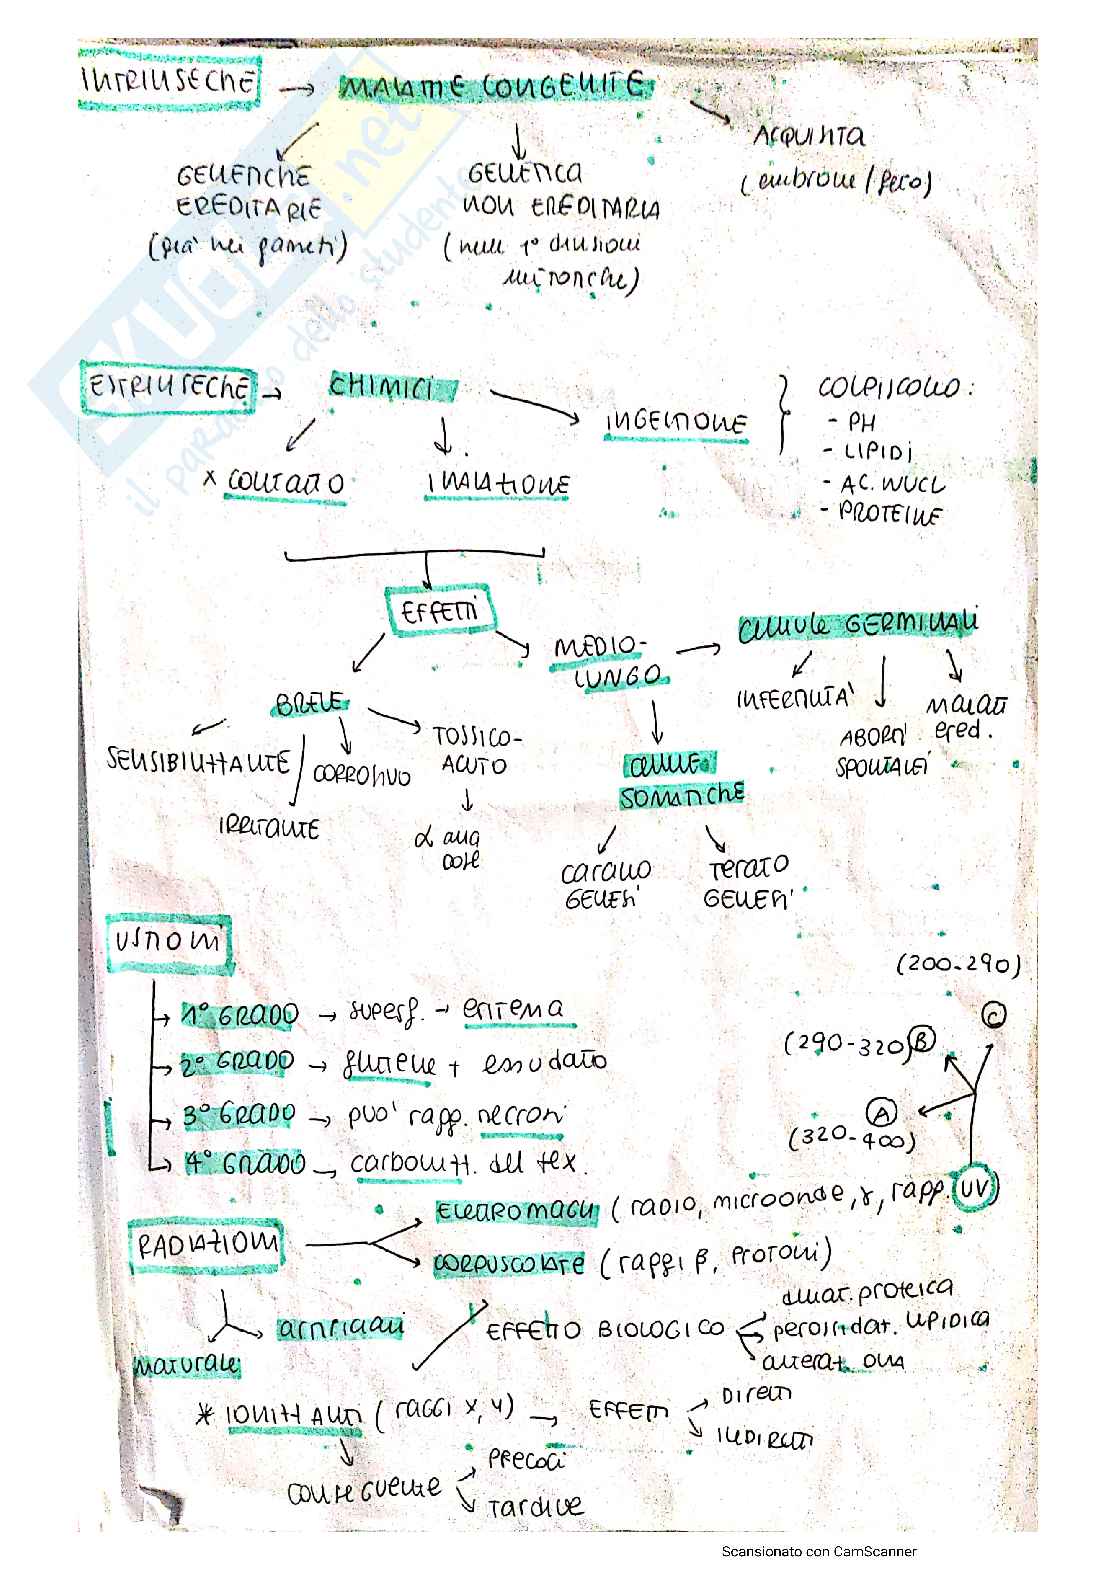 INTRINSECHE → MALATTIE CONGENITE
ACQUISITA
(embrione / feto)
GENETICHE
EREDITARIE
(già nei gameti)
GENETICA
NON EREDITARIA
(nelle 1° divisioni
mitotiche)
ESTRINSECHE → CHIMICI
INGESTIONE
x CONTATTO
INALAZIONE
COLPISCONO:
- PH
- LIPIDI
- AC. NUCL
- PROTEINE
EFFETTI
MEDIO-
LUNGO
CELLULE GERMINALI
INFERTILITÀ
ABORTI
SPONTANEI
MALATT
ered.
BREVE
SENSIBILIZZANTE
IRRITANTE
CORROSIVO
TOSSICO-
ACUTO
↓
α alla
dose
CELLULE
SOMATICHE
CANCERO
GENESI
TERATO
GENESI
USTIONI
1° GRADO → superf. → eritema
2° GRADO → flittene + essudato
3° GRADO → può rapp. necrosi
4° GRADO → carbonizz. del tex.
(200-290)
C
(290-320) B
A
(320-400)
RADIAZIONI
ELETTROMAGN (RADIO, microonde, γ, rapp. UV)
CORPUSCOLATE (raggi β, PROTONI)
ARTIFICIALI
NATURALE
EFFETTO BIOLOGICO
denat. proteica
perossidaz. LIPIDICA
alteraz. DNA
* IONIZZANTI (RAGGI X, γ) → EFFETTI
DIRETTI
INDIRETTI
CONSEGUENZE
PRECOCI
TARDIVE
SKUOLA.net
il paradiso dello studente
Scansionato con CamScanner